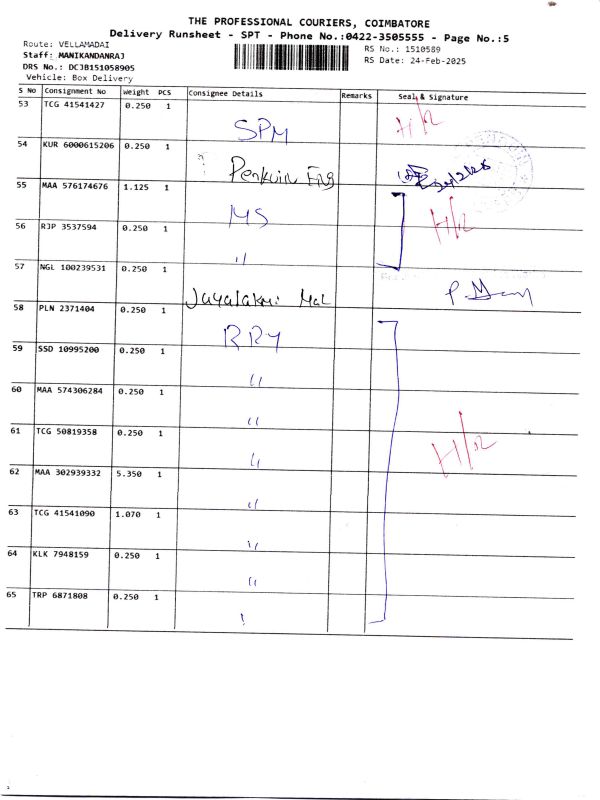 THE PROFESSIONAL COURIERS, COIMBATORE
Delivery Runsheet - SPT - Phone No.:0422-3505555 - Page No.:5
Route: VELLAMADAI
Staff: MANIKANDANRAJ
DRS No.: DCJB151058905
Vehicle: Box Delivery
RS No.: 1510589
RS Date: 24-Feb-2025
S No Consignment No Weight PCS Consignee Details Remarks Seal & Signature
53 TCG 41541427 0.250 1 SPM
54 KUR 6000615206 0.250 1 Penkuin Eng
55 MAA 576174676 1.125 1 MS
56 RJP 3537594 0.250 1 "
57 NGL 100239531 0.250 1 Jayalakmi
58 PLN 2371404 0.250 1 RRY
59 SSD 10995200 0.250 1 "
60 MAA 574306284 0.250 1 "
61 TCG 50819358 0.250 1 "
62 MAA 302939332 5.350 1 "
63 TCG 41541090 1.070 1 "
64 KLK 7948159 0.250 1 "
65 TRP 6871808 0.250 1